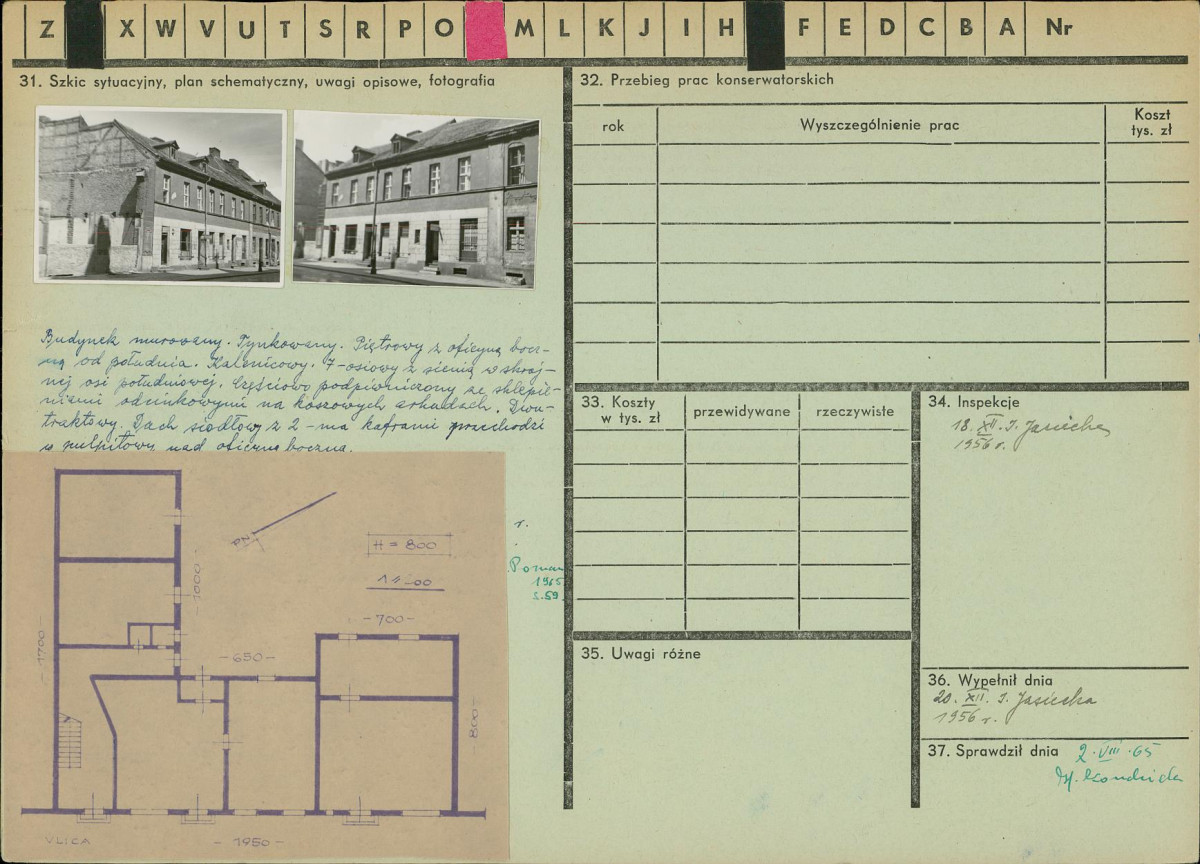 Z X W V U T S R P O M L K J I H F E D C B A Nr
31. Szkic sytuacyjny, plan schematyczny, uwagi opisowe, fotografia
Budynek murowany. Tynkowany. Piętrowy z oficyną bocz-
ną od południa. Kalenicowy. 7-osiowy z sienią w skraj-
nej osi południowej. Częściowo podpiwniczony ze sklepie-
niami odcinkowymi na koszowych arkadach. Dwu-
traktowy. Dach siodłowy z 2-ma kaframi przechodzi
w pulpitowy nad oficyną boczną.
r.
1965
s.59.
PN
H = 800
- 1000 -
- 1700 -
- 700 -
- 650 -
- 800 -
VLICA
- 1950 -
32. Przebieg prac konserwatorskich
rok
Wyszczególnienie prac
Koszt
tys. zł
33. Koszty
w tys. zł
przewidywane
rzeczywiste
34. Inspekcje
18. XII. I. Jasiecka
1956 r.
35. Uwagi różne
36. Wypełnił dnia
20. XII. I. Jasiecka
1956 r.
37. Sprawdził dnia 2.VIII.65